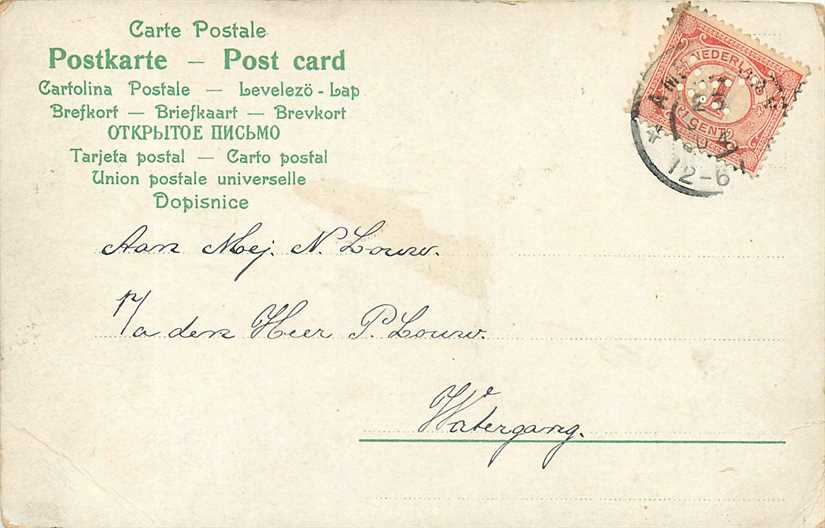 Carte Postale
Postkarte — Post card
Cartolina Postale — Levelezö - Lap
Brefkort — Briefkaart — Brevkort
ОТКРЫТОЕ ПИСЬМО
Tarjeta postal — Carto postal
Union postale universelle
Dopisnice
NEDERLAND
1
CENT
12-6
Aan Mej. N. Louw.
P/a den Heer P. Louw.
Watergang.